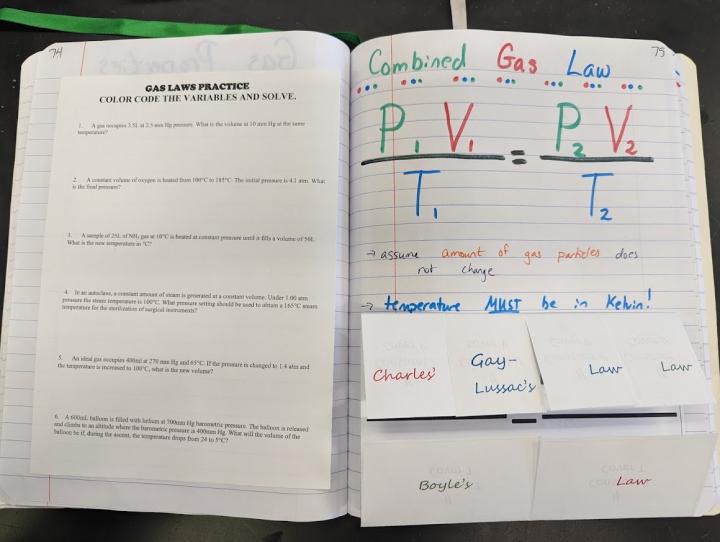 74
GAS LAWS PRACTICE
COLOR CODE THE VARIABLES AND SOLVE.
1. A gas occupies 3.5L at 2.5 mm Hg pressure. What is the volume at 10 mm Hg at the same
temperature?
2. A constant volume of oxygen is heated from 100°C to 185°C. The initial pressure is 4.1 atm. What
is the final pressure?
3. A sample of 25L of NH₃ gas at 10°C is heated at constant pressure until it fills a volume of 50L.
What is the new temperature in °C?
4. In an autoclave, a constant amount of steam is generated at a constant volume. Under 1.00 atm
pressure the steam temperature is 100°C. What pressure setting should be used to obtain a 165°C steam
temperature for the sterilization of surgical instruments?
5. An ideal gas occupies 400ml at 270 mm Hg and 65°C. If the pressure is changed to 1.4 atm and
the temperature is increased to 100°C, what is the new volume?
6. A 600mL balloon is filled with helium at 700mm Hg barometric pressure. The balloon is released
and climbs to an altitude where the barometric pressure is 400mm Hg. What will the volume of the
balloon be if, during the ascent, the temperature drops from 24 to 5°C?
75
Combined Gas Law
P₁ V₁ = P₂ V₂
T₁ T₂
→ assume amount of gas particles does
not change
→ temperature MUST be in Kelvin!
Charles'
Gay-
Lussac's
Law
Law
Boyle's
Law